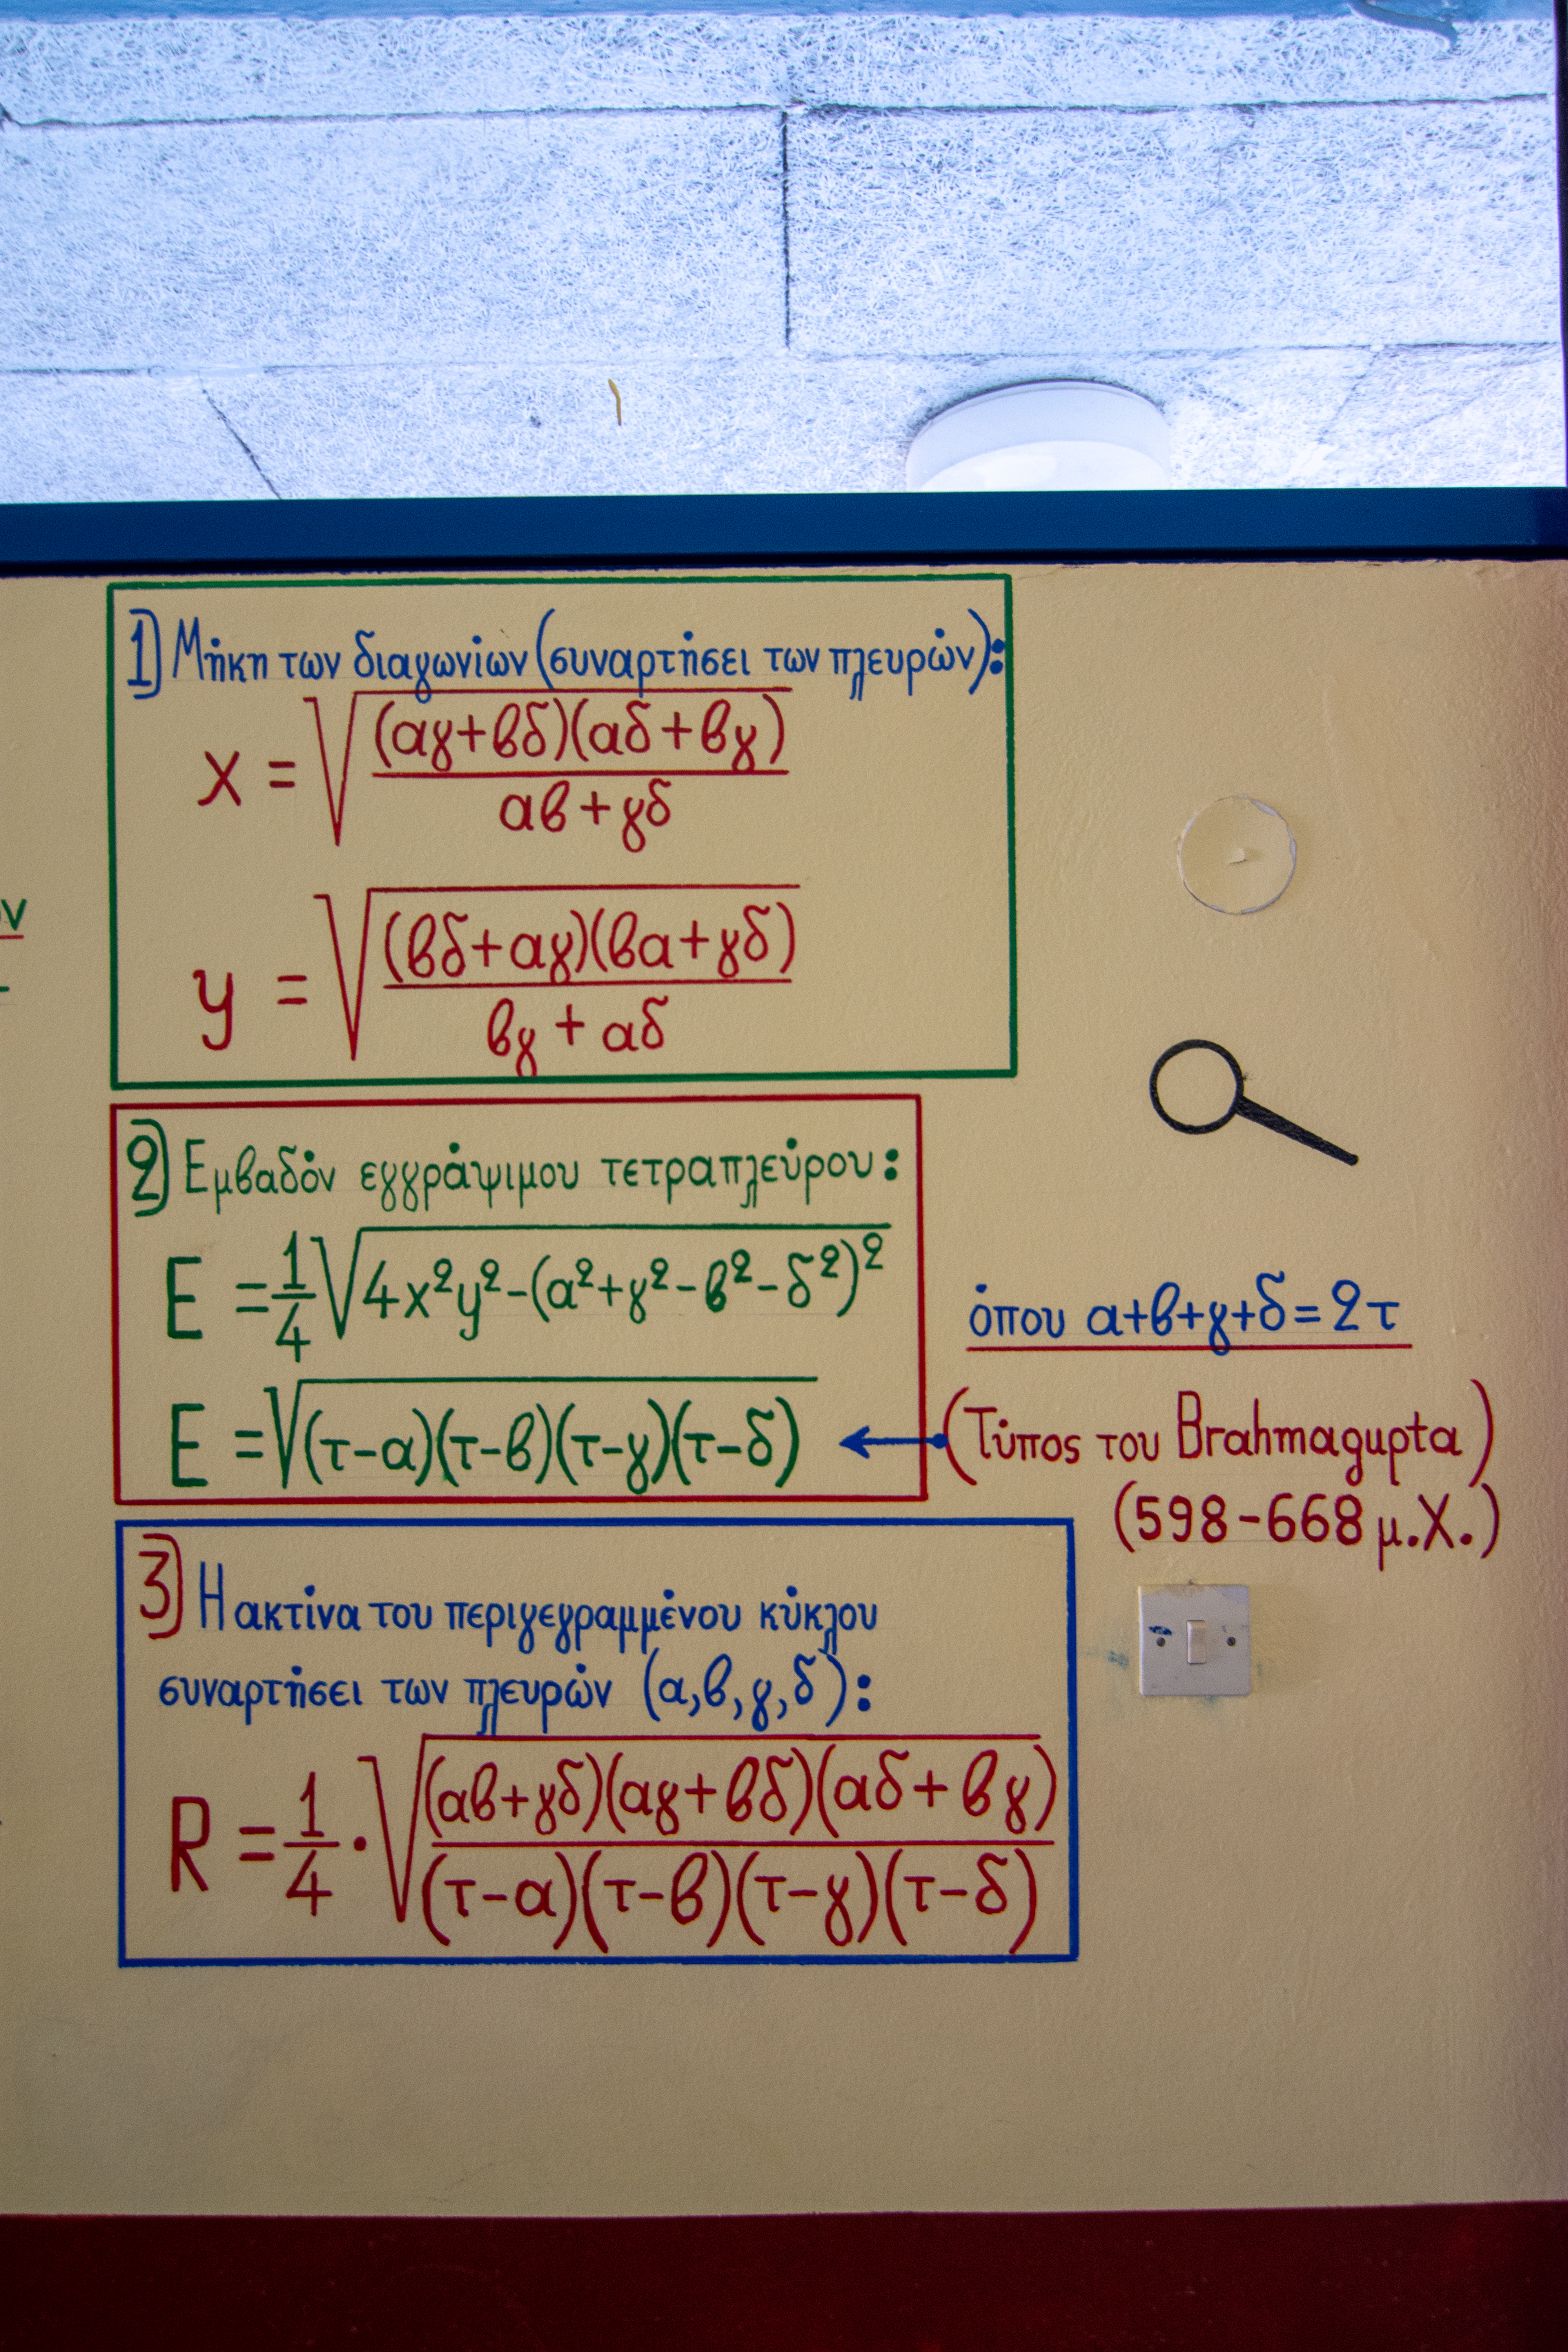 1) Μήκη των διαγωνίων (συναρτήσει των πλευρών):
x = √((αγ+βδ)(αδ+βγ) / (αβ+γδ))
y = √((βδ+αγ)(βα+γδ) / (βγ+αδ))
2) Εμβαδόν εγγράψιμου τετραπλεύρου:
E = 1/4 √(4x²y²-(α²+γ²-β²-δ²)²)
όπου α+β+γ+δ=2τ
E = √((τ-α)(τ-β)(τ-γ)(τ-δ))
(Τύπος του Brahmagupta)
(598-668 μ.Χ.)
3) Η ακτίνα του περιγεγραμμένου κύκλου
συναρτήσει των πλευρών (α,β,γ,δ):
R = 1/4 · √((αβ+γδ)(αγ+βδ)(αδ+βγ) / (τ-α)(τ-β)(τ-γ)(τ-δ))